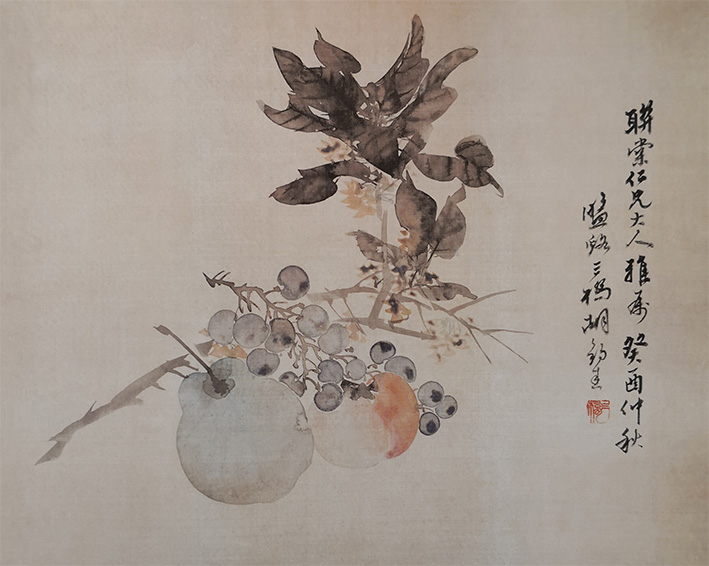 聯棠仁兄大人雅屬 癸酉仲秋
盚谿三橋胡錫圭